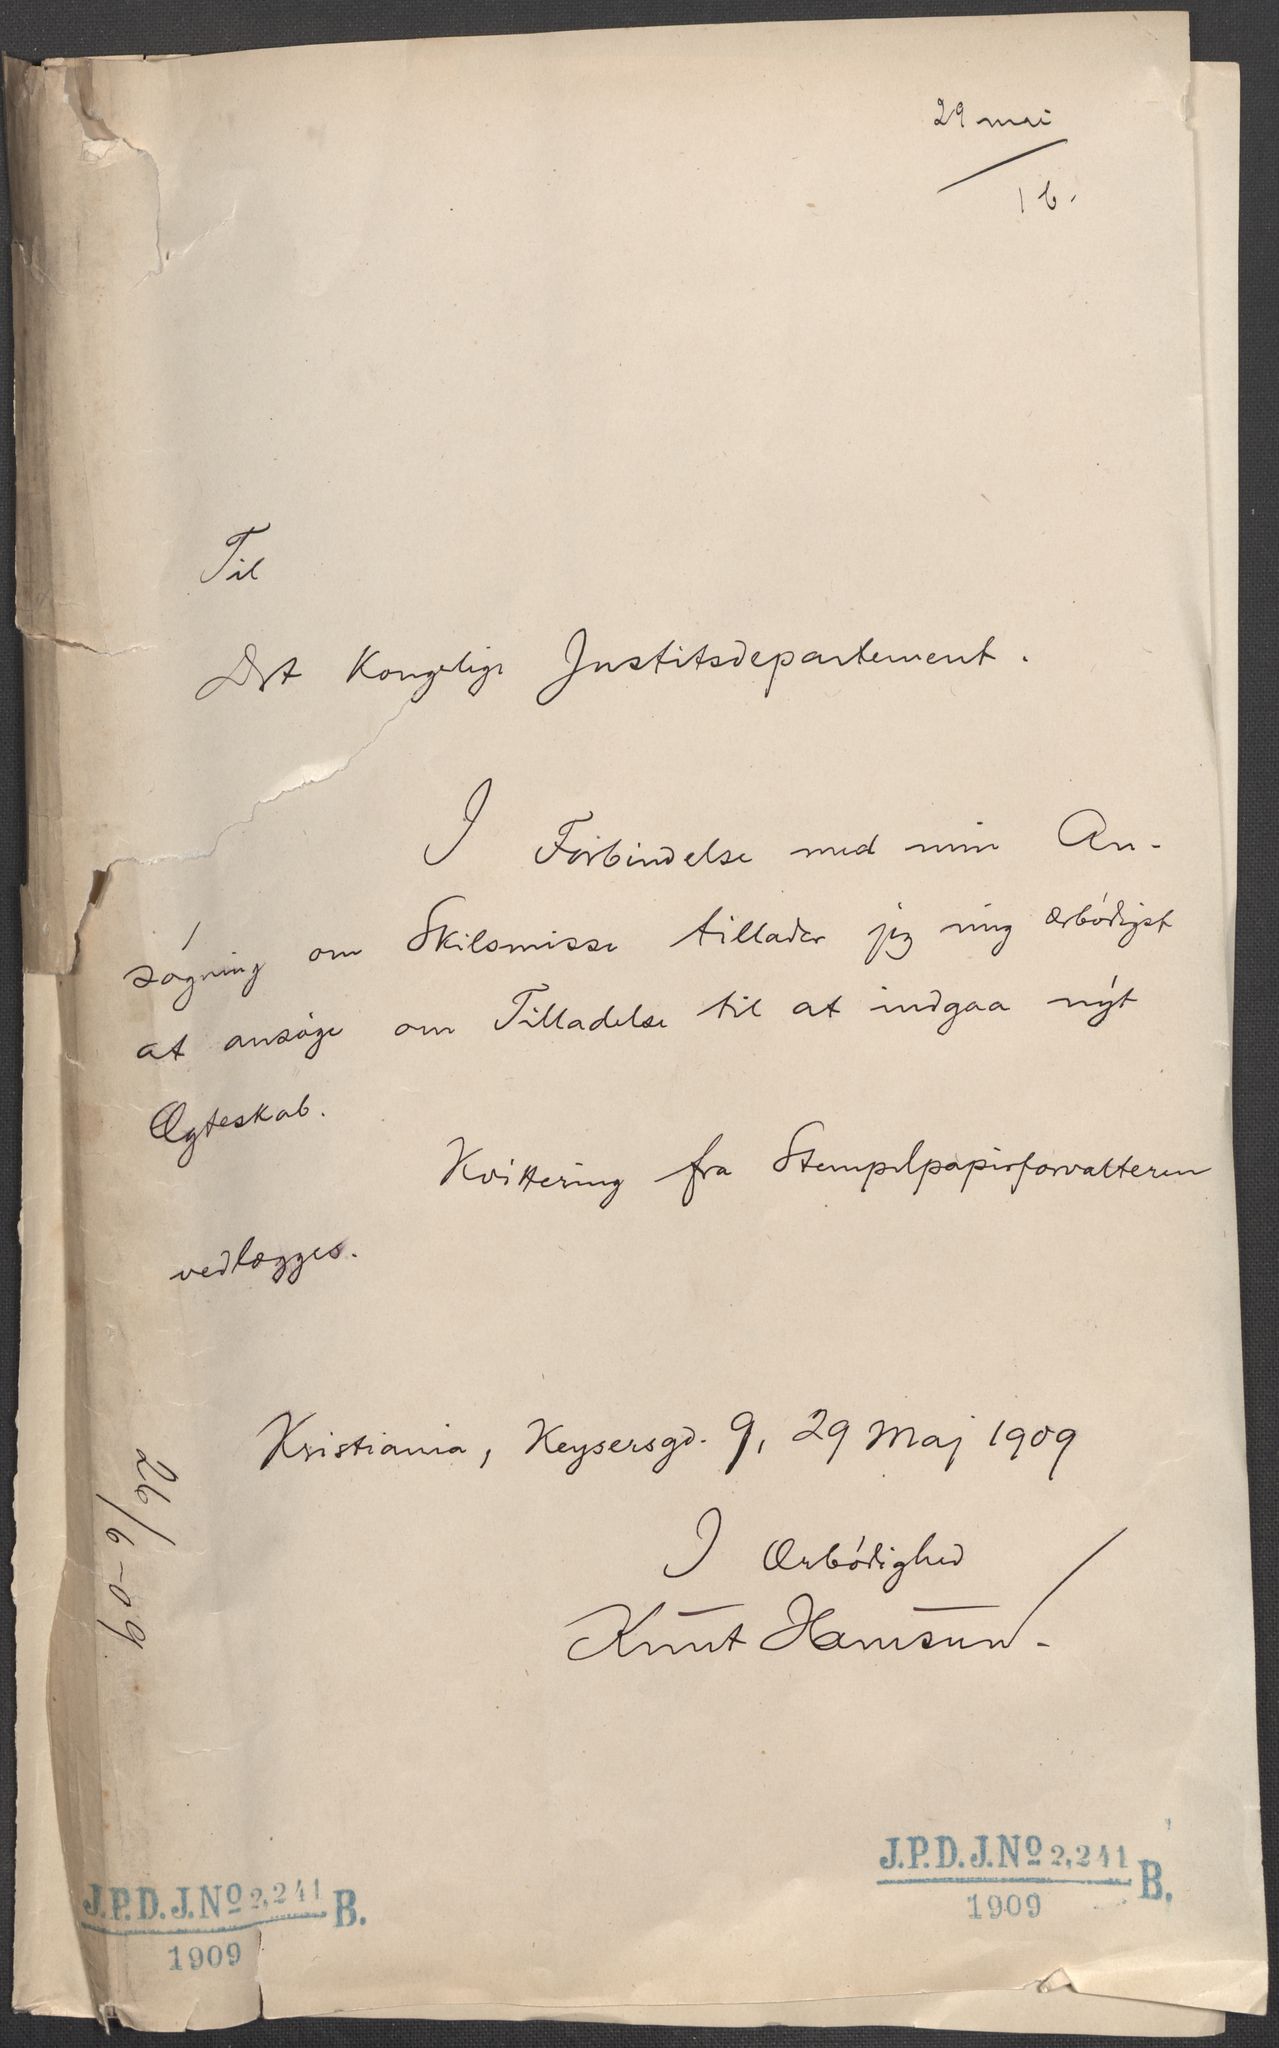 29 mai
16.
Til
Det Kongelige Justitsdepartement.
I Forbindelse med min An-
søgning om Skilsmisse tillader jeg mig ærbødigst
at ansøge om Tilladelse til at indgaa nyt
Ægteskab.
Kvittering fra Stempelpapirforvalteren
vedlægges.
Kristiania, Keysersgd. 9, 29 Maj 1909
I Ærbødighed
Knut Hamsun.
26/6-09
J.P.D.J.Nº 2,241 B.
1909
J.P.D.J.Nº 2,241 B.
1909